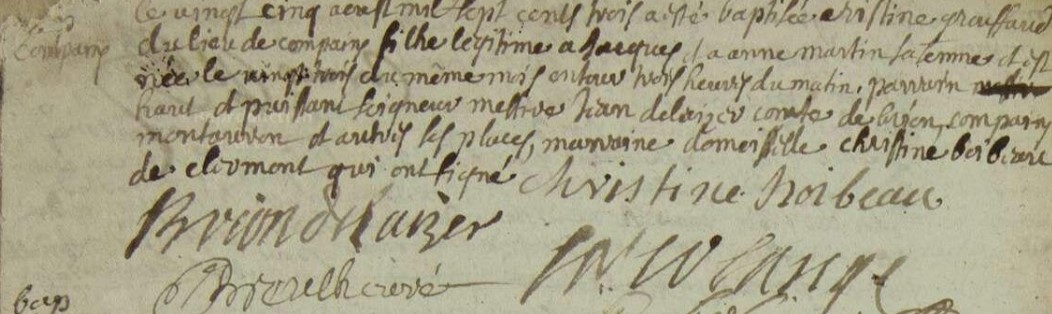 le vingt cinq aoust mil sept cents trois a esté baptisée cristine grouffaud
Compains
du lieu de compains filhe legitime a Jacques et a anne martin sa femme et est
née le vingt trois du même mois entour trois heures du matin, parrain
haut et puissant seigneur messire Jean delaizer comte de brion, compains
montauron et autres ses places, marraine domoiselle christine boibeau
de clermont qui ont signé christine boibeau
Brion delaizer
curé
bap